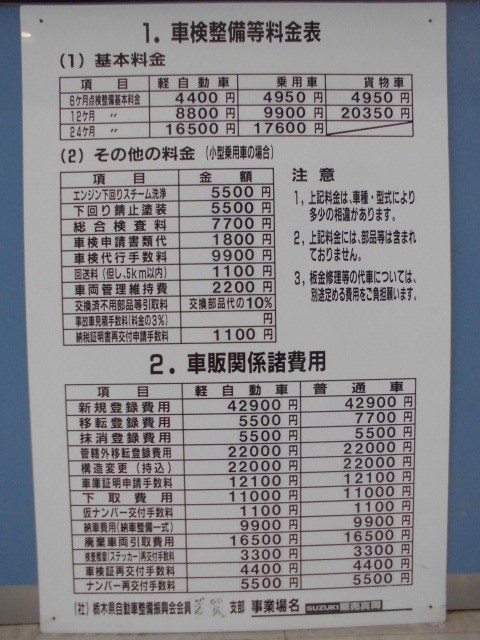 1. 車検整備等料金表
(1) 基本料金
項目 軽自動車 乗用車 貨物車
6ヶ月点検整備基本料金 4400円 4950円 4950円
12ヶ月 〃 8800円 9900円 20350円
24ヶ月 〃 16500円 17600円
(2) その他の料金 (小型乗用車の場合)
項目 金額
エンジン下回りスチーム洗浄 5500円
下回り錆止塗装 5500円
総合検査料 7700円
車検申請書類代 1800円
車検代行手数料 9900円
回送料(但し、5km以内) 1100円
車両管理維持費 2200円
交換済不用部品等引取料 交換部品代の10%
事故車見積手数料(料金の3%) 円
納税証明書再交付申請手数料 1100円
注意
1, 上記料金は、車種・型式により
多少の相違があります。
2, 上記料金には、部品等は含まれ
ておりません。
3, 板金修理等の代車については、
別途定める費用をご負担願います。
2. 車販関係諸費用
項目 軽自動車 普通車
新規登録費用 42900円 42900円
移転登録費用 5500円 7700円
抹消登録費用 5500円 5500円
管轄外移転登録費用 22000円 22000円
構造変更(持込) 22000円 22000円
車庫証明申請手数料 12100円 12100円
下取費用 11000円 11000円
仮ナンバー交付手数料 1100円 1100円
納車費用(納車整備一式) 9900円 9900円
廃棄車両引取費用 16500円 16500円
検査標章(ステッカー)再交付手数料 3300円 3300円
車検証再交付手数料 4400円 4400円
ナンバー再交付手数料 5500円 5500円
(社) 栃木県自動車整備振興会会員 芳賀 支部 事業場名 SUZUKI 販売真岡